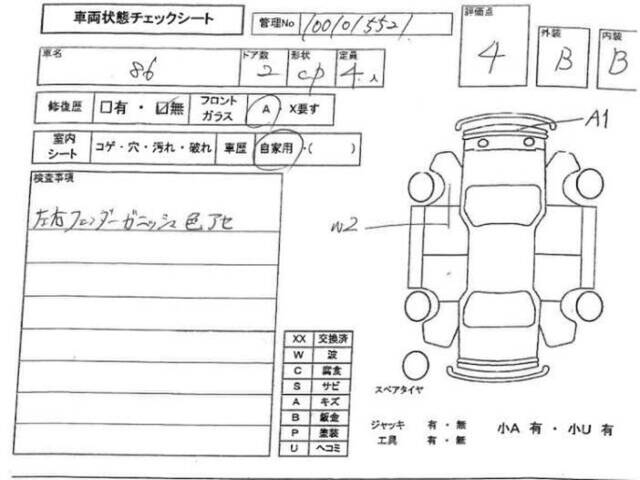 車両状態チェックシート
管理No 1000101552
評価点
4
外装
B
内装
B
車名
86
ドア数
2
形状
cp
定員
4人
修復歴 □有・☑無
フロントガラス
A X要す
室内シート
コゲ・穴・汚れ・破れ
車歴
自家用・( )
検査事項
左右フェンダーガーニッシュ色アセ
A1
W2
XX 交換済
W 波
C 腐食
S サビ
A キズ
B 鈑金
P 塗装
U ヘコミ
スペアタイヤ
ジャッキ 有・無
工具 有・無
小A 有・小U 有